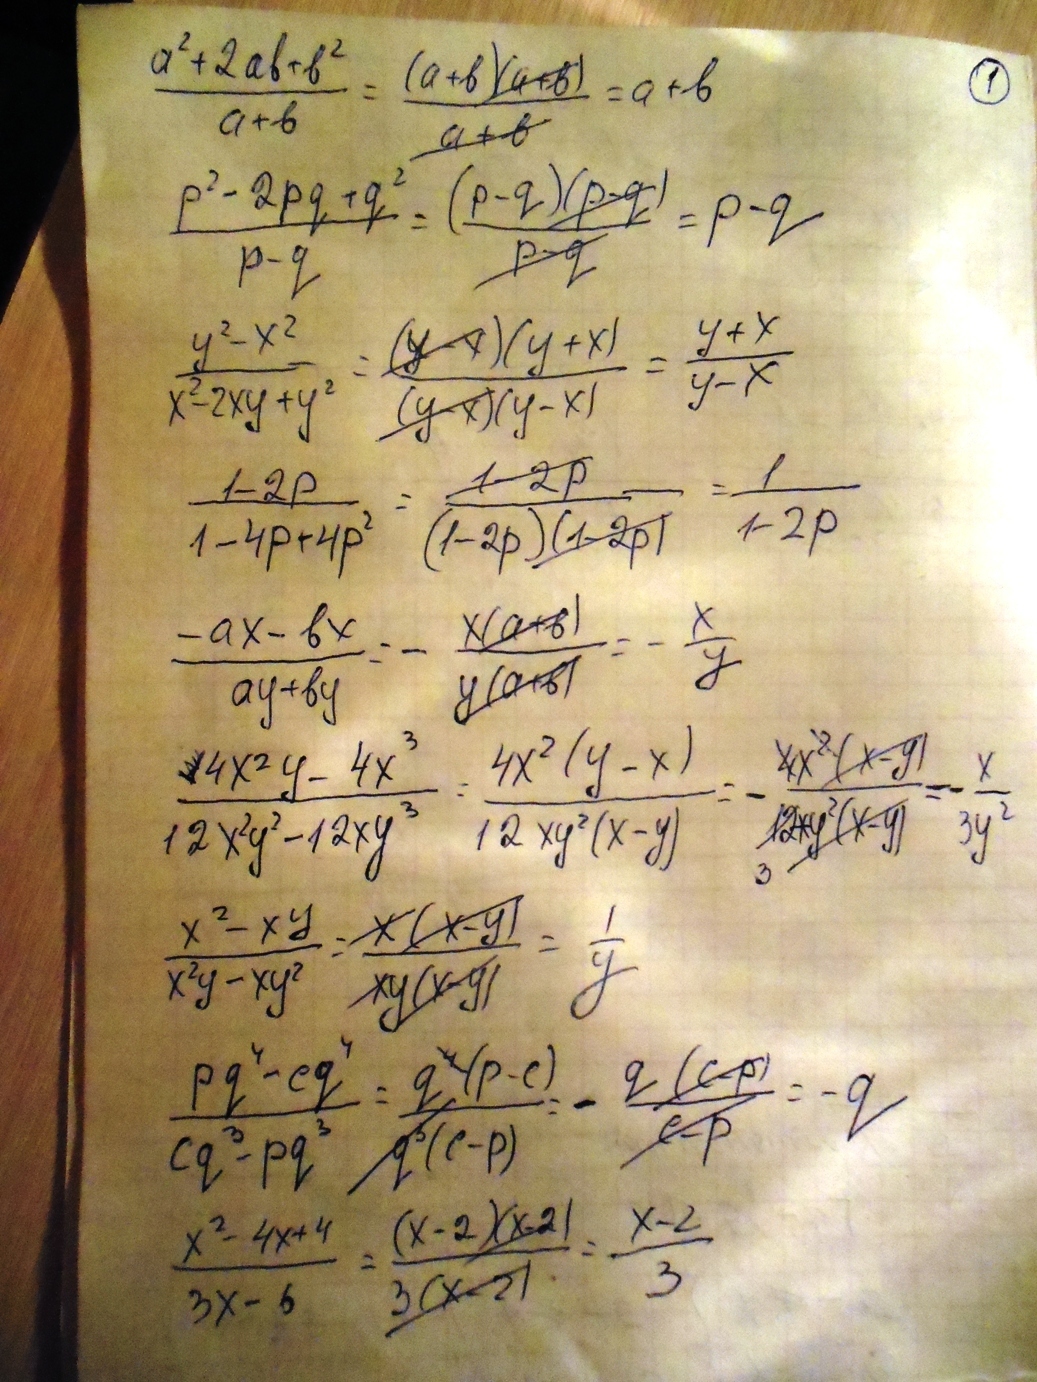 1
(a²+2ab+b²)/(a+b) = (a+b)(a+b)/(a+b) = a+b
(p²-2pq+q²)/(p-q) = (p-q)(p-q)/(p-q) = p-q
(y²-x²)/(x²-2xy+y²) = (y-x)(y+x)/(y-x)(y-x) = (y+x)/(y-x)
(1-2p)/(1-4p+4p²) = (1-2p)/(1-2p)(1-2p) = 1/(1-2p)
(-ax-bx)/(ay+by) = - x(a+b)/y(a+b) = - x/y
(4x²y-4x³)/(12x²y²-12xy³) = 4x²(y-x)/12xy²(x-y) = - 4x²(x-y)/12xy²(x-y) 3 = - x/3y²
(x²-xy)/(x²y-xy²) = x(x-y)/xy(x-y) = 1/y
(pq⁴-cq⁴)/(cq³-pq³) = q⁴(p-c)/q³(c-p) = - q(c-p)/(c-p) = -q
(x²-4x+4)/(3x-6) = (x-2)(x-2)/3(x-2) = (x-2)/3